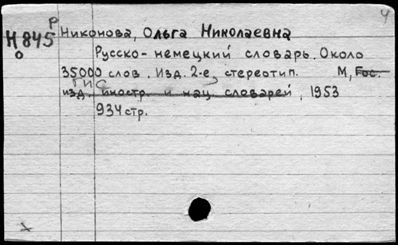 Р
Н 845
О
Никонова, Ольга Николаевна
Русско-немецкий словарь. Около
35000 слов. Изд. 2-е, стереотип. М, Гос.
ГИС
изд. иностр. и нац. словарей, 1953
934 стр.